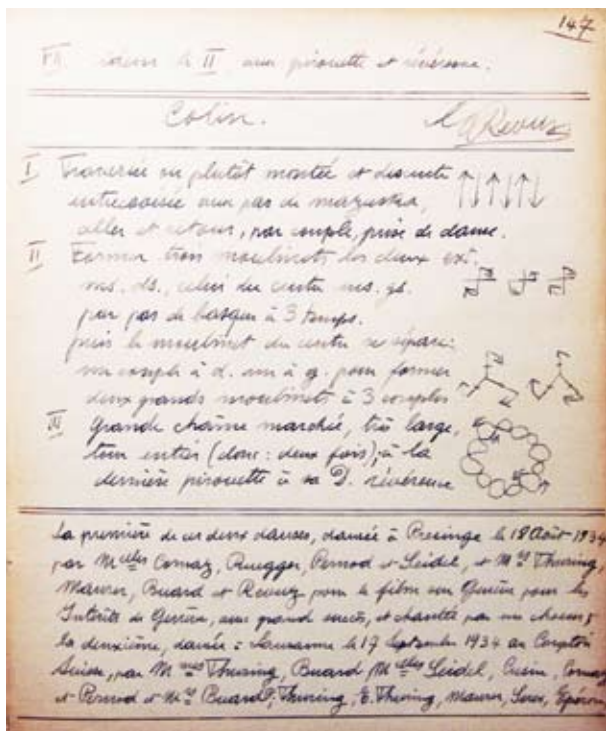 147
idem le II, avec pirouette et révérence.
Colin.
I Traversée ou plutôt montée et descente
entrecroisée avec pas de mazurka,
aller et retour, par couple, prise de danse.
II Former trois moulinets les deux ext.
ms. ds., celui du centre ms. gs.
par pas de basque à 3 temps.
puis le moulinet du centre se sépare:
un couple à d. un à g. pour former
deux grands moulinets à 3 couples
III Grande chaîne marchée, très large,
tour entier (donc: deux fois), à la
dernière pirouette à sa D. révérence
La première de ces deux danses, dansée à Presinge le 19 Août 1934
par Melles Cornaz, Ruegger, Pernod et Seidel, et Mrs Thuring,
Maurer, Buard et Revuz pour le film sur Genève pour les
Intérêts de Genève, avec grand succès, et chantée par un choeur;
la deuxième, dansée à Lausanne le 17 Septembre 1934 au Comptoir
Suisse, par Mmes Thuring, Buard Melles Seidel, Cornaz
et Pernod et Mrs Buard, Thuring, E. Thuring, Maurer,